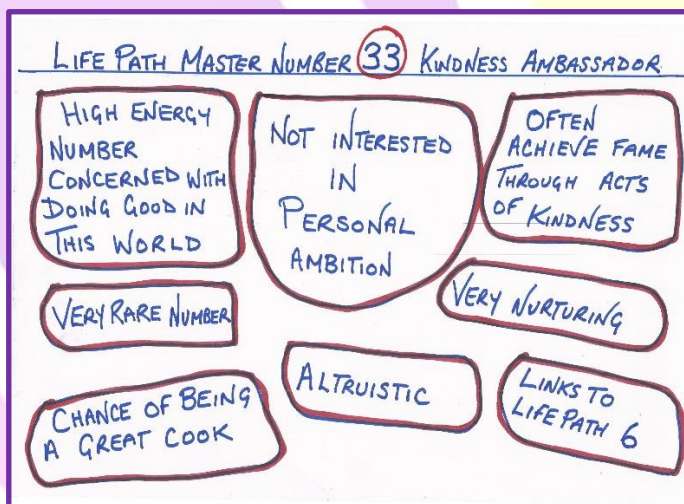 LIFE PATH MASTER NUMBER 33 KINDNESS AMBASSADOR
HIGH ENERGY
NUMBER
CONCERNED WITH
DOING GOOD IN
THIS WORLD
NOT INTERESTED
IN
PERSONAL
AMBITION
OFTEN
ACHIEVE FAME
THROUGH ACTS
OF KINDNESS
VERY RARE NUMBER
VERY NURTURING
CHANCE OF BEING
A GREAT COOK
ALTRUISTIC
LINKS TO
LIFE PATH 6